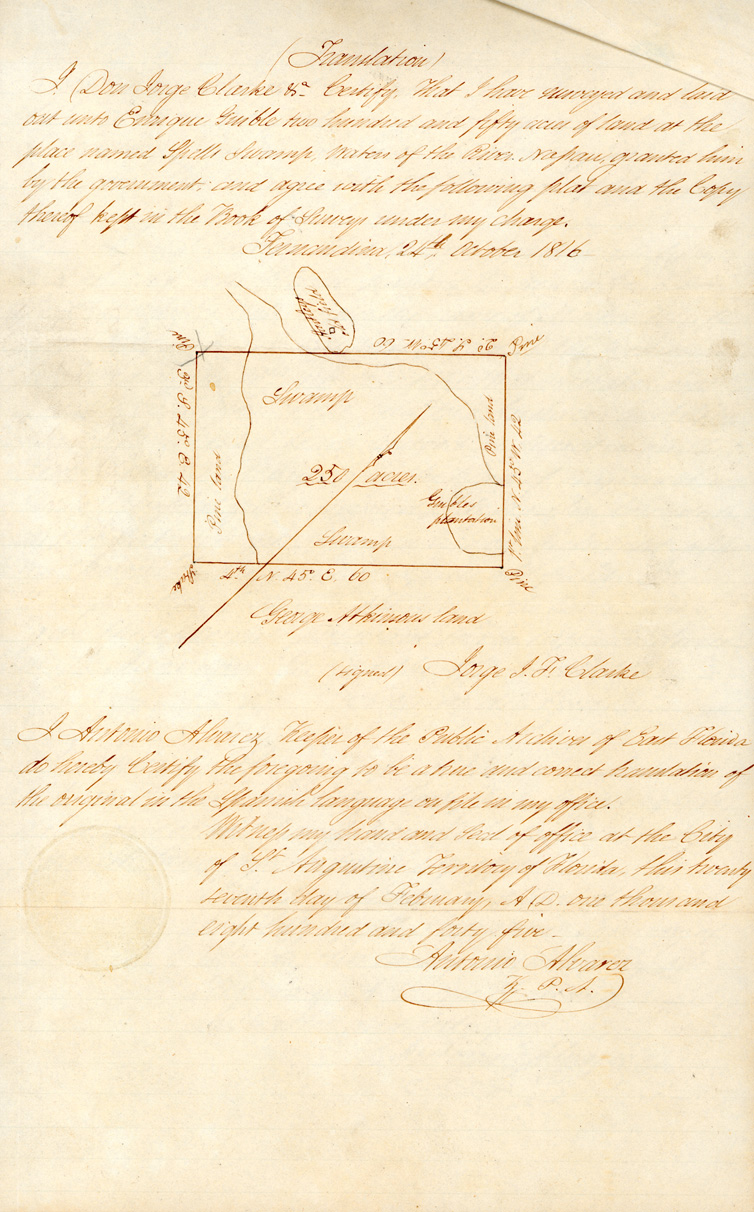 (Translation)
I (Don Jorge Clarke &a Certify. That I have surveyed and laid
out unto Enrique Guible two hundred and fifty acres of land at the
place named Spells Swamp, Waters of the River Nassau, granted him
by the government, and agree with the following plat and the Copy
thereof kept in the Book of Surveys under my charge.
Fernandina, 24th October 1816
Pine
2d S. 45o W. 60
Pine
3d S. 45o E. 42
Swamp
Pine land
Pine land
250 acres.
Guibles
plantation
1st line N. 45o W. 42
Swamp
Stake
4th N. 45o E. 60
Pine
George Atkinsons land
(signed) Jorge J. F. Clarke
I Antonio Alvarez Keeper of the Public Archives of East Florida
do hereby Certify the foregoing to be a true and correct translation of
the original in the Spanish language on file in my office.
Witness my hand and Seal of office at the City
of St. Augustine Territory of Florida, this twenty
seventh day of February, A.D. one thousand
eight hundred and forty five
Antonio Alvarez
K. P. A.